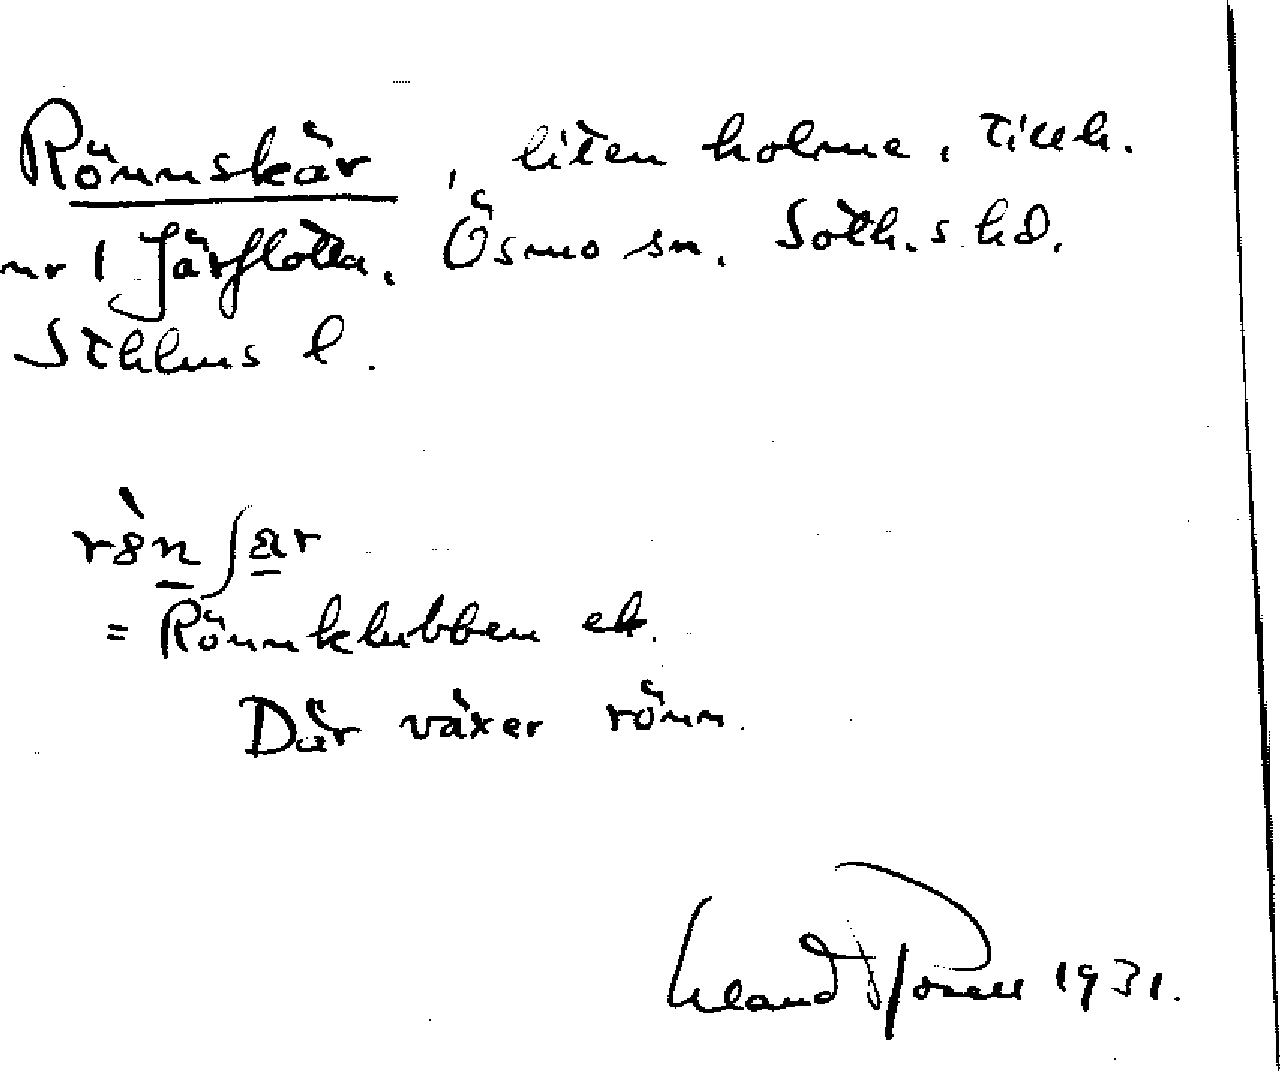 Rönnskär, liten holme, tillh.
nr 1 Järflotta, Ösmo sn, Soth.s hd.
Sthlms l.
= Rönnklubben ek.
Där växer rönn.
1931.